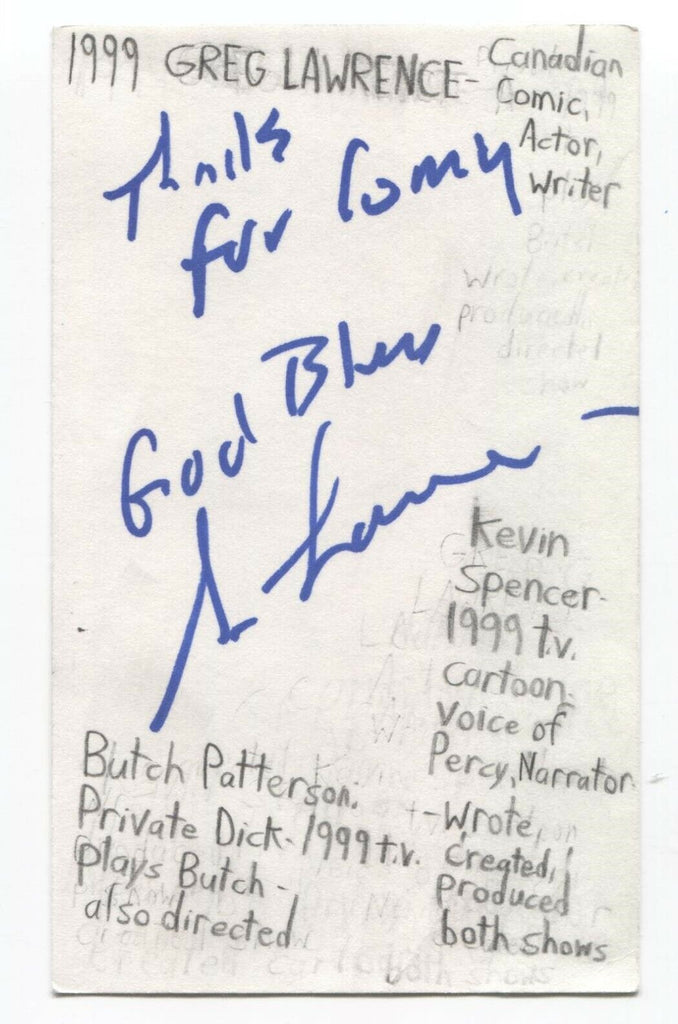 1999 GREG LAWRENCE- Canadian
Comic,
Actor,
Writer
Thanks
for Comy
God Bless
Kevin
Spencer-
1999 t.v.
cartoon-
Voice of
Percy, Narrator
-Wrote,
created,
produced
both shows
Butch Patterson,
Private Dick- 1999 t.v.
plays Butch -
also directed